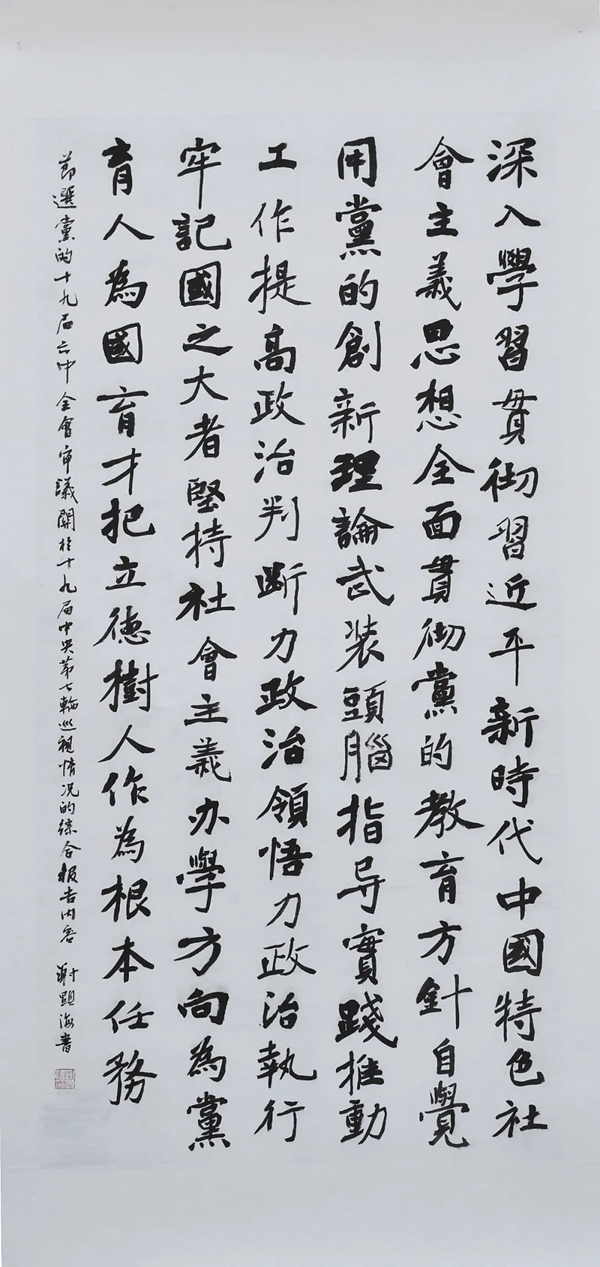 深入學習貫彻習近平新時代中國特色社
會主義思想全面貫彻黨的教育方針自覺
用黨的創新理論武装頭腦指导實踐推動
工作提高政治判斷力政治領悟力政治執行
牢記國之大者堅持社會主義办學方向為黨
育人為國育才把立德樹人作為根本任務
节選黨的十九届六中全會审議關於十九届中央第七輪巡視情况的综合报告内容 謝顯海書